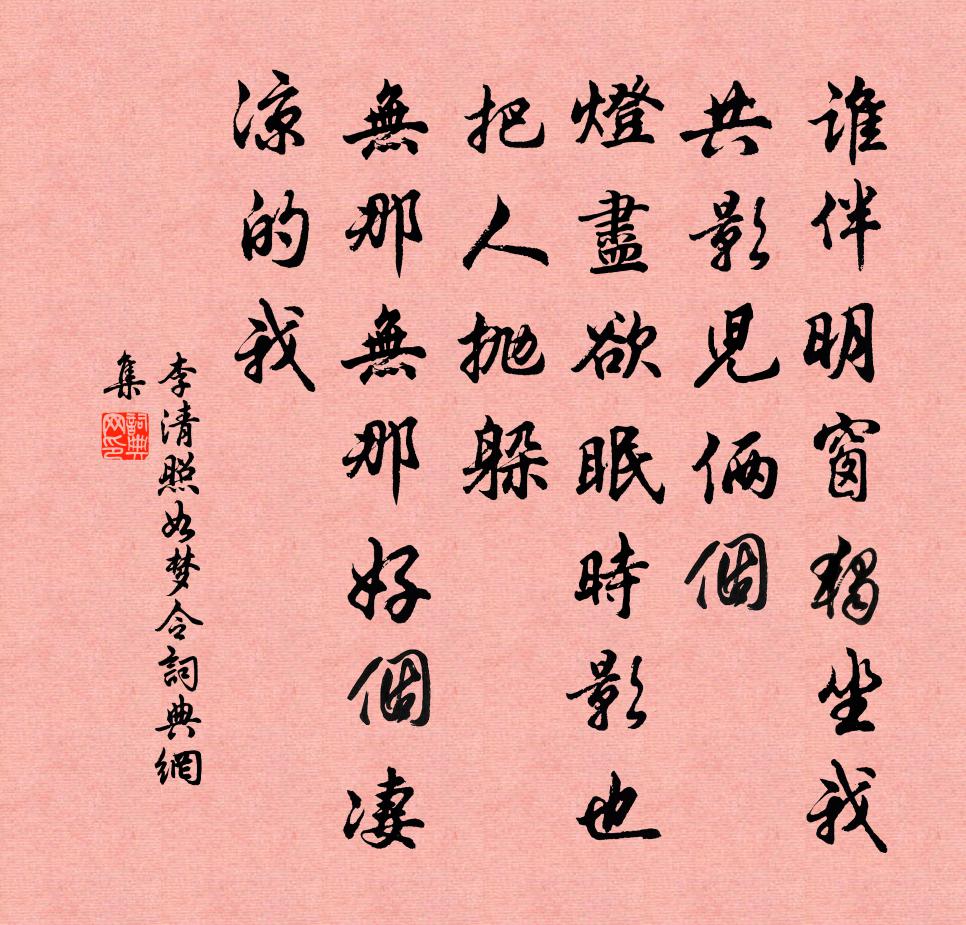 谁伴明窗獨坐我
共影兒倆個
燈盡欲眠時影也
把人拋躲
無那無那好個淒
凉的我
李清照如梦令詞典網
集
詞典网印